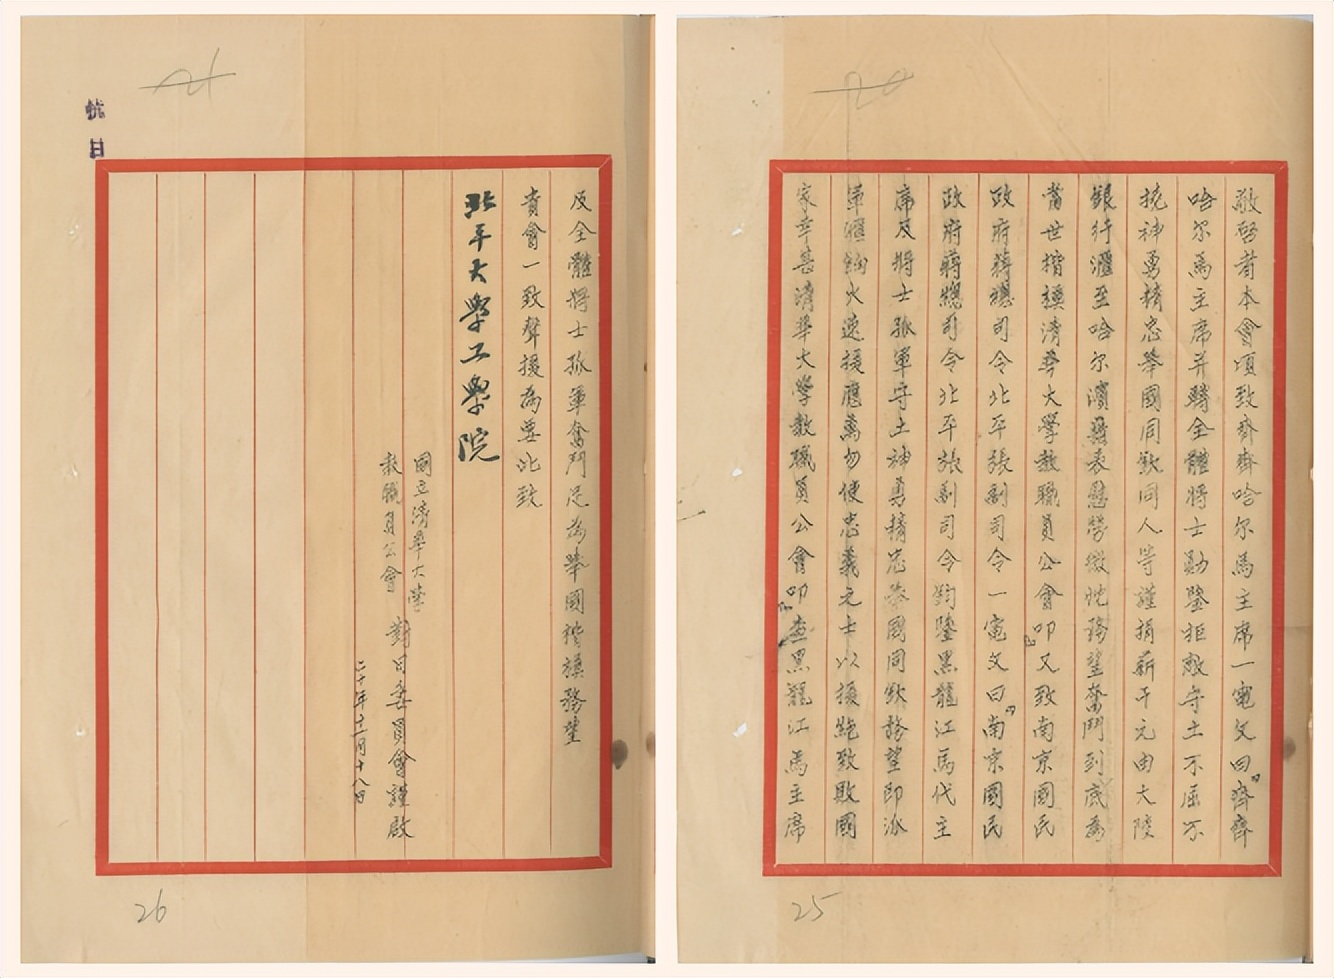 20
敬啓者本會頃致齊齊哈尔馬主席一電文曰「齊齊
哈尔馬主席并轉全體將士勛鑒拒敵守土不屈不
撓神勇精忠舉國同欽同人等謹捐薪千元由大陸
銀行滙至哈尔濱藉表慰勞微忱務望奮鬥到底為
當世楷模清華大學教職員公會叩」又致南京國民
政府蔣總司令北平張副司令一電文曰「南京國民
政府蔣總司令北平張副司令鈞鑒黑龍江馬代主
席及將士孤軍守土神勇精忠舉國同欽務望即派
軍滙餉火速援應萬勿使忠義之士以援絕致敗國
家幸甚清華大學教職員公會叩」查黑龍江馬主席
25
21
反全體將士孤軍奮鬥足為舉國楷模務望
貴會一致聲援為要此致
北平大學工學院
國立清華大學
教職員公會
對日委員會謹啟
二十年十一月十八日
26